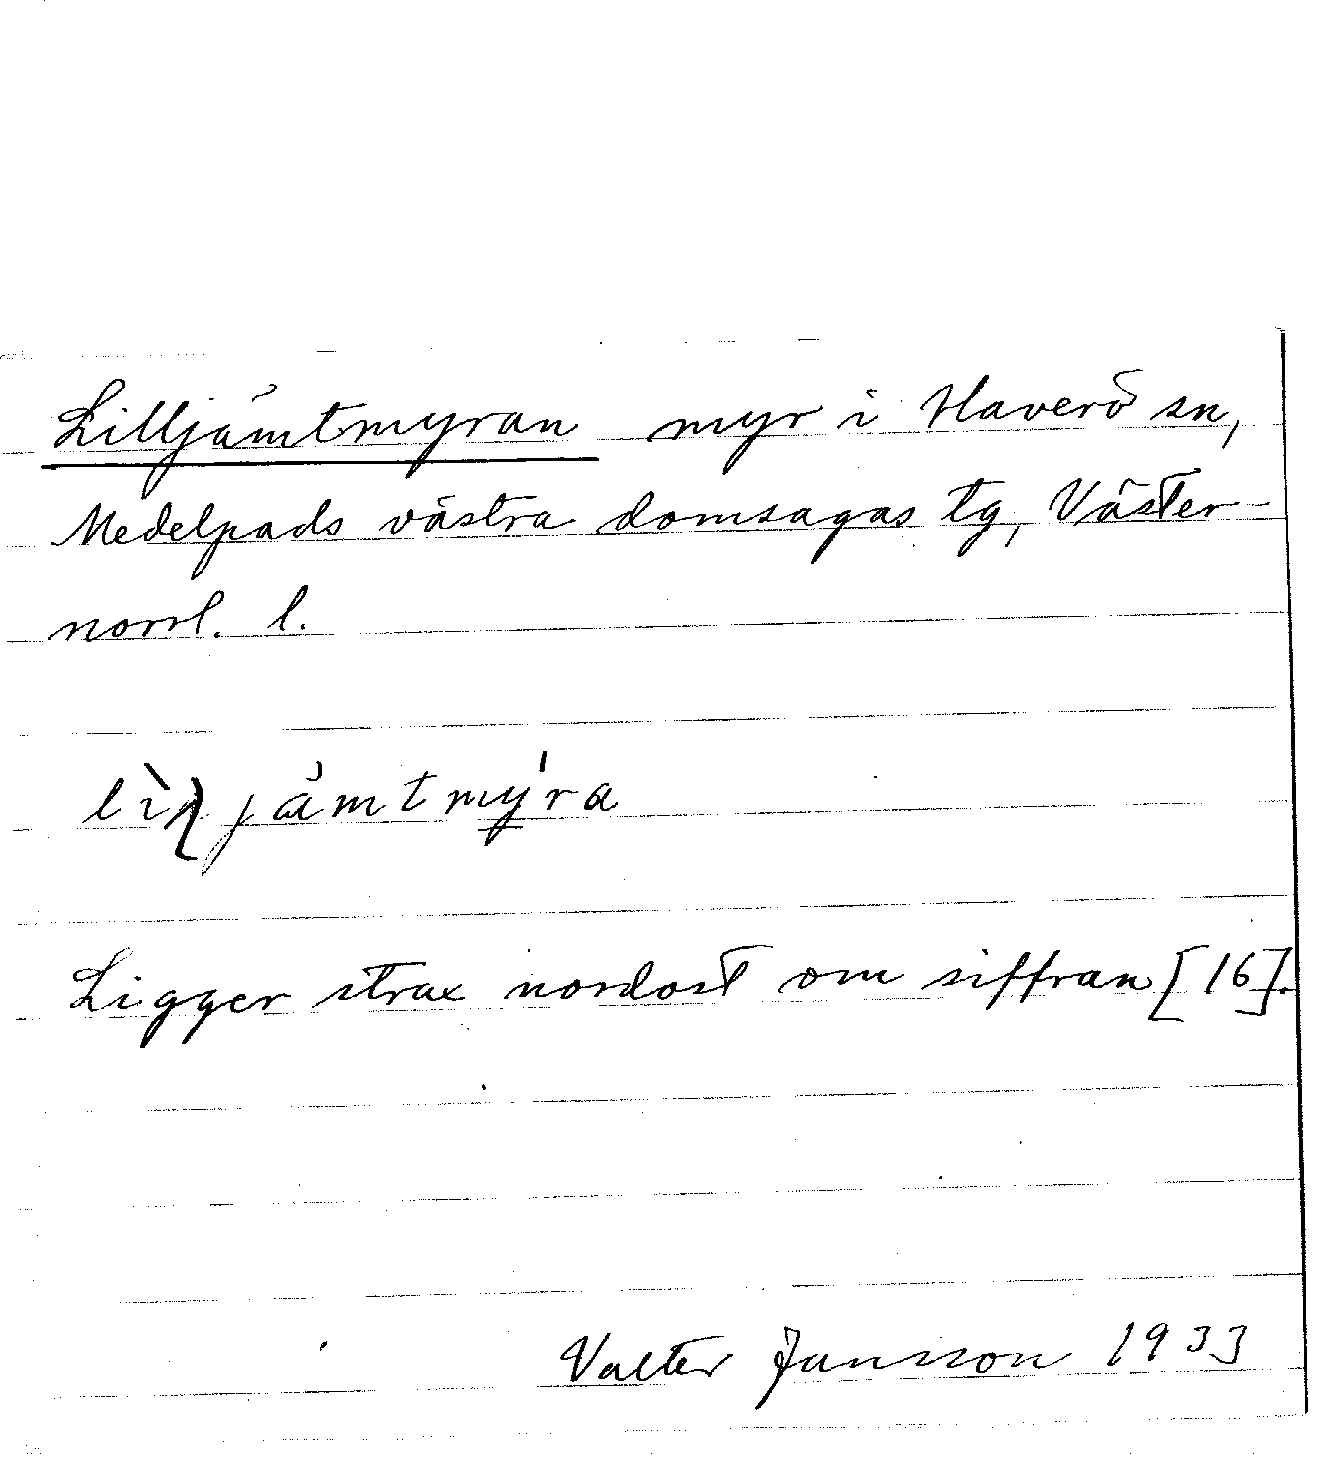 Lilljämtmyran myr i Haverö sn,
Medelpads västra domsagas tg, Väster-
norrl. l.
Ligger strax nordost om siffran [16].
Valter Jansson 1933